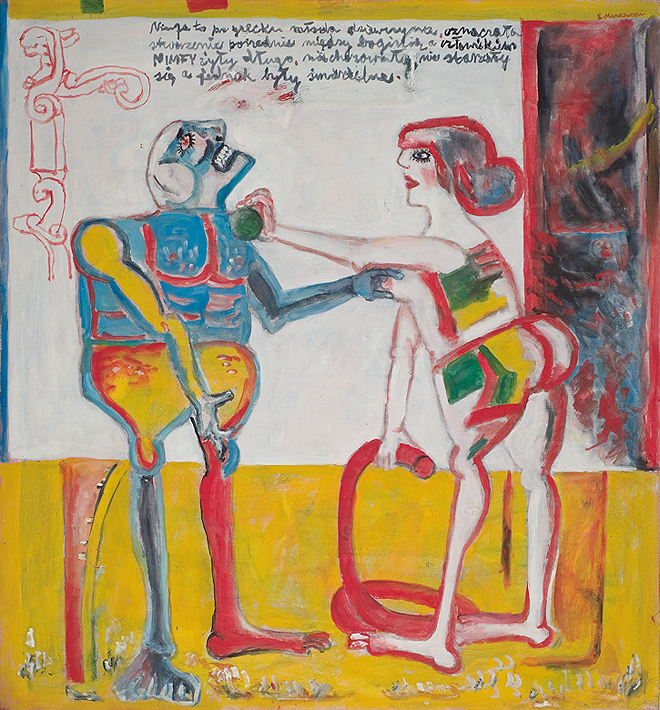 E. MARKOWSKI
Nimfa to po grecku młoda dziewczyna, oznaczała
stworzenie pośrednie między boginią a człowiekiem
NIMFY żyły długo, nie chorowały, nie starzały
się a jednak były śmiertelne.